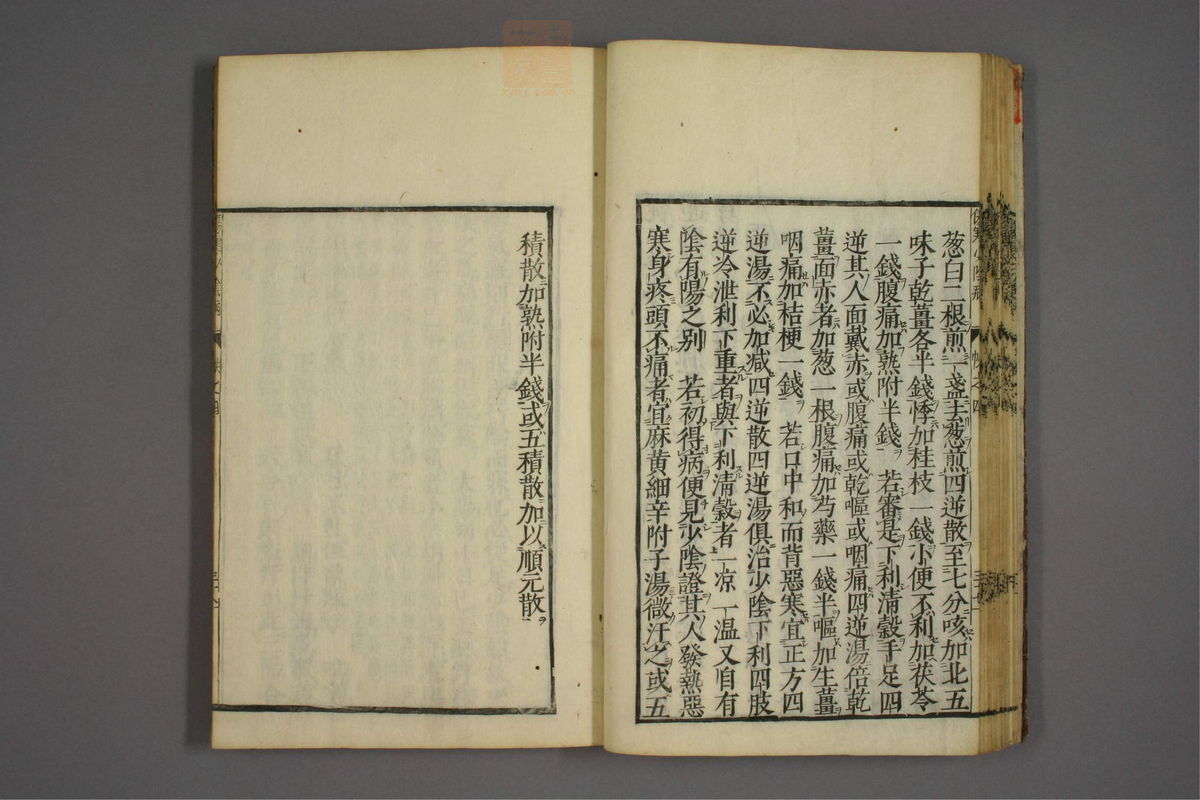 葱白二根煎一盞去葱煎四逆散至七分咳加北五
味子乾薑各半錢悸加桂枝一錢小便不利加茯苓
一錢腹痛加熟附半錢 若審是下利清穀手足四
逆其人面戴赤或腹痛或乾嘔或咽痛四逆湯倍乾
薑面赤者加葱一根腹痛加芍藥一錢半嘔加生薑
咽痛加桔梗一錢 若口中和而背惡寒宜正方四
逆湯不必加减四逆散四逆湯俱治少陰下利四肢
逆冷泄利下重者與下利清穀者一凉一温又自有
陰有陽之别 若初得病便見少陰證其人發熱惡
寒身疼頭不痛者宜麻黄細辛附子湯微汗之或五
積散加熟附半錢或五積散加以順元散